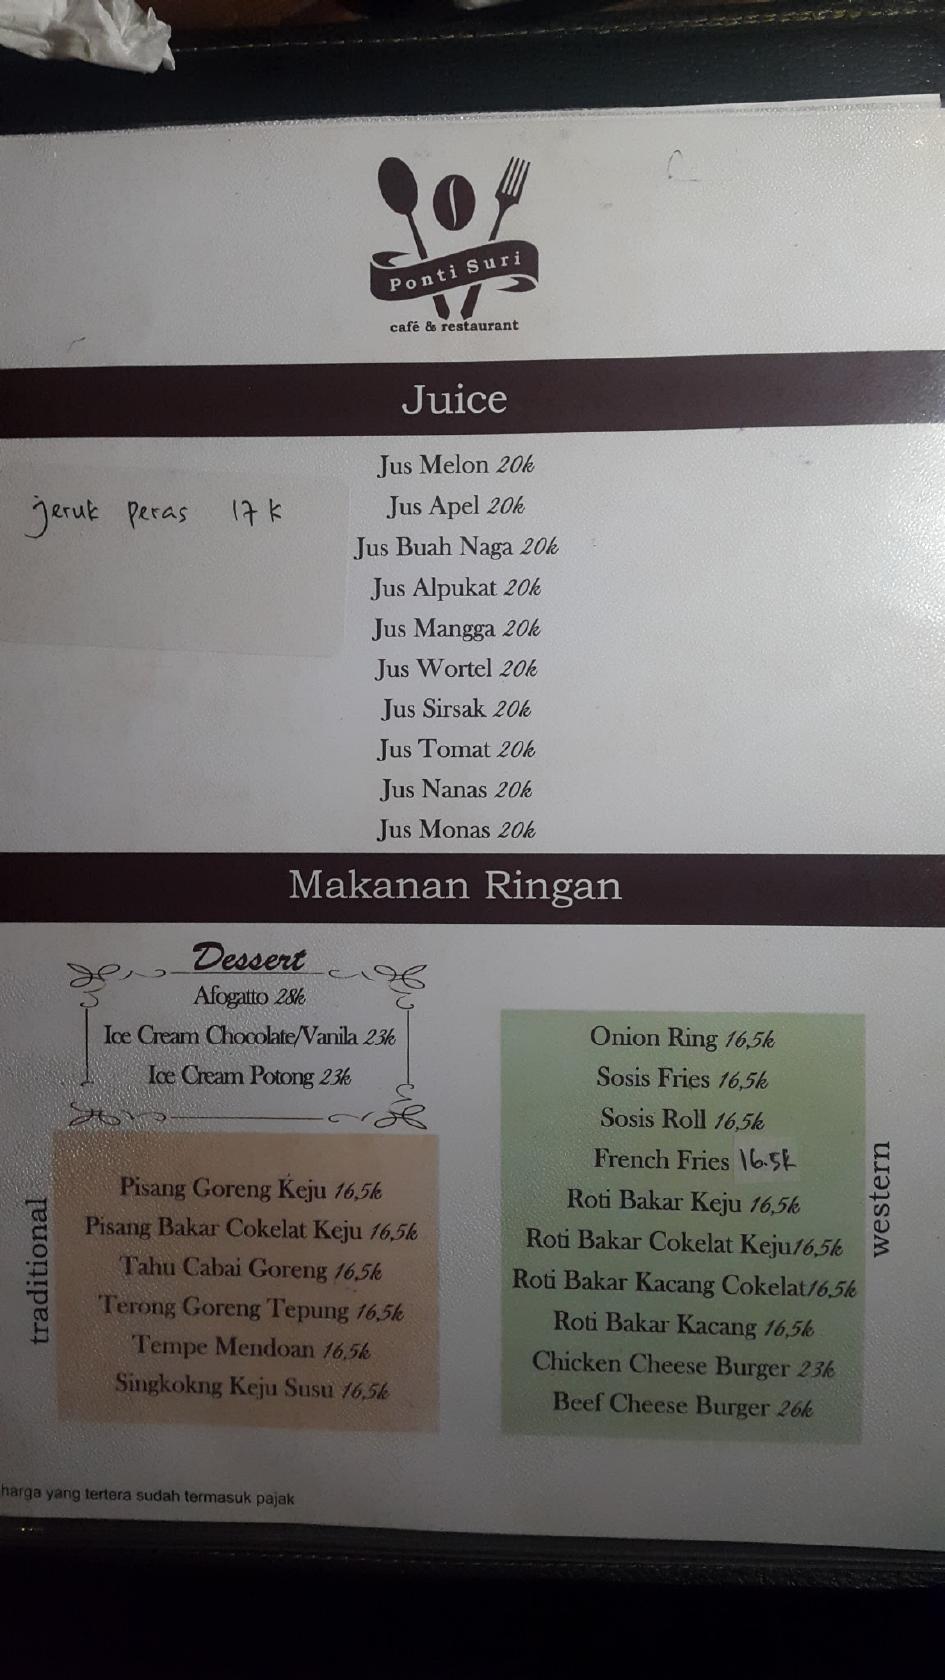 Ponti Suri
café & restaurant
Juice
jeruk peras 17 k
Jus Melon 20k
Jus Apel 20k
Jus Buah Naga 20k
Jus Alpukat 20k
Jus Mangga 20k
Jus Wortel 20k
Jus Sirsak 20k
Jus Tomat 20k
Jus Nanas 20k
Jus Monas 20k
Makanan Ringan
Dessert
Afogatto 28k
Ice Cream Chocolate/Vanila 23k
Ice Cream Potong 23k
traditional
Pisang Goreng Keju 16,5k
Pisang Bakar Cokelat Keju 16,5k
Tahu Cabai Goreng 16,5k
Terong Goreng Tepung 16,5k
Tempe Mendoan 16,5k
Singkokng Keju Susu 16,5k
western
Onion Ring 16,5k
Sosis Fries 16,5k
Sosis Roll 16,5k
French Fries 16.5k
Roti Bakar Keju 16,5k
Roti Bakar Cokelat Keju16,5k
Roti Bakar Kacang Cokelat16,5k
Roti Bakar Kacang 16,5k
Chicken Cheese Burger 23k
Beef Cheese Burger 26k
harga yang tertera sudah termasuk pajak